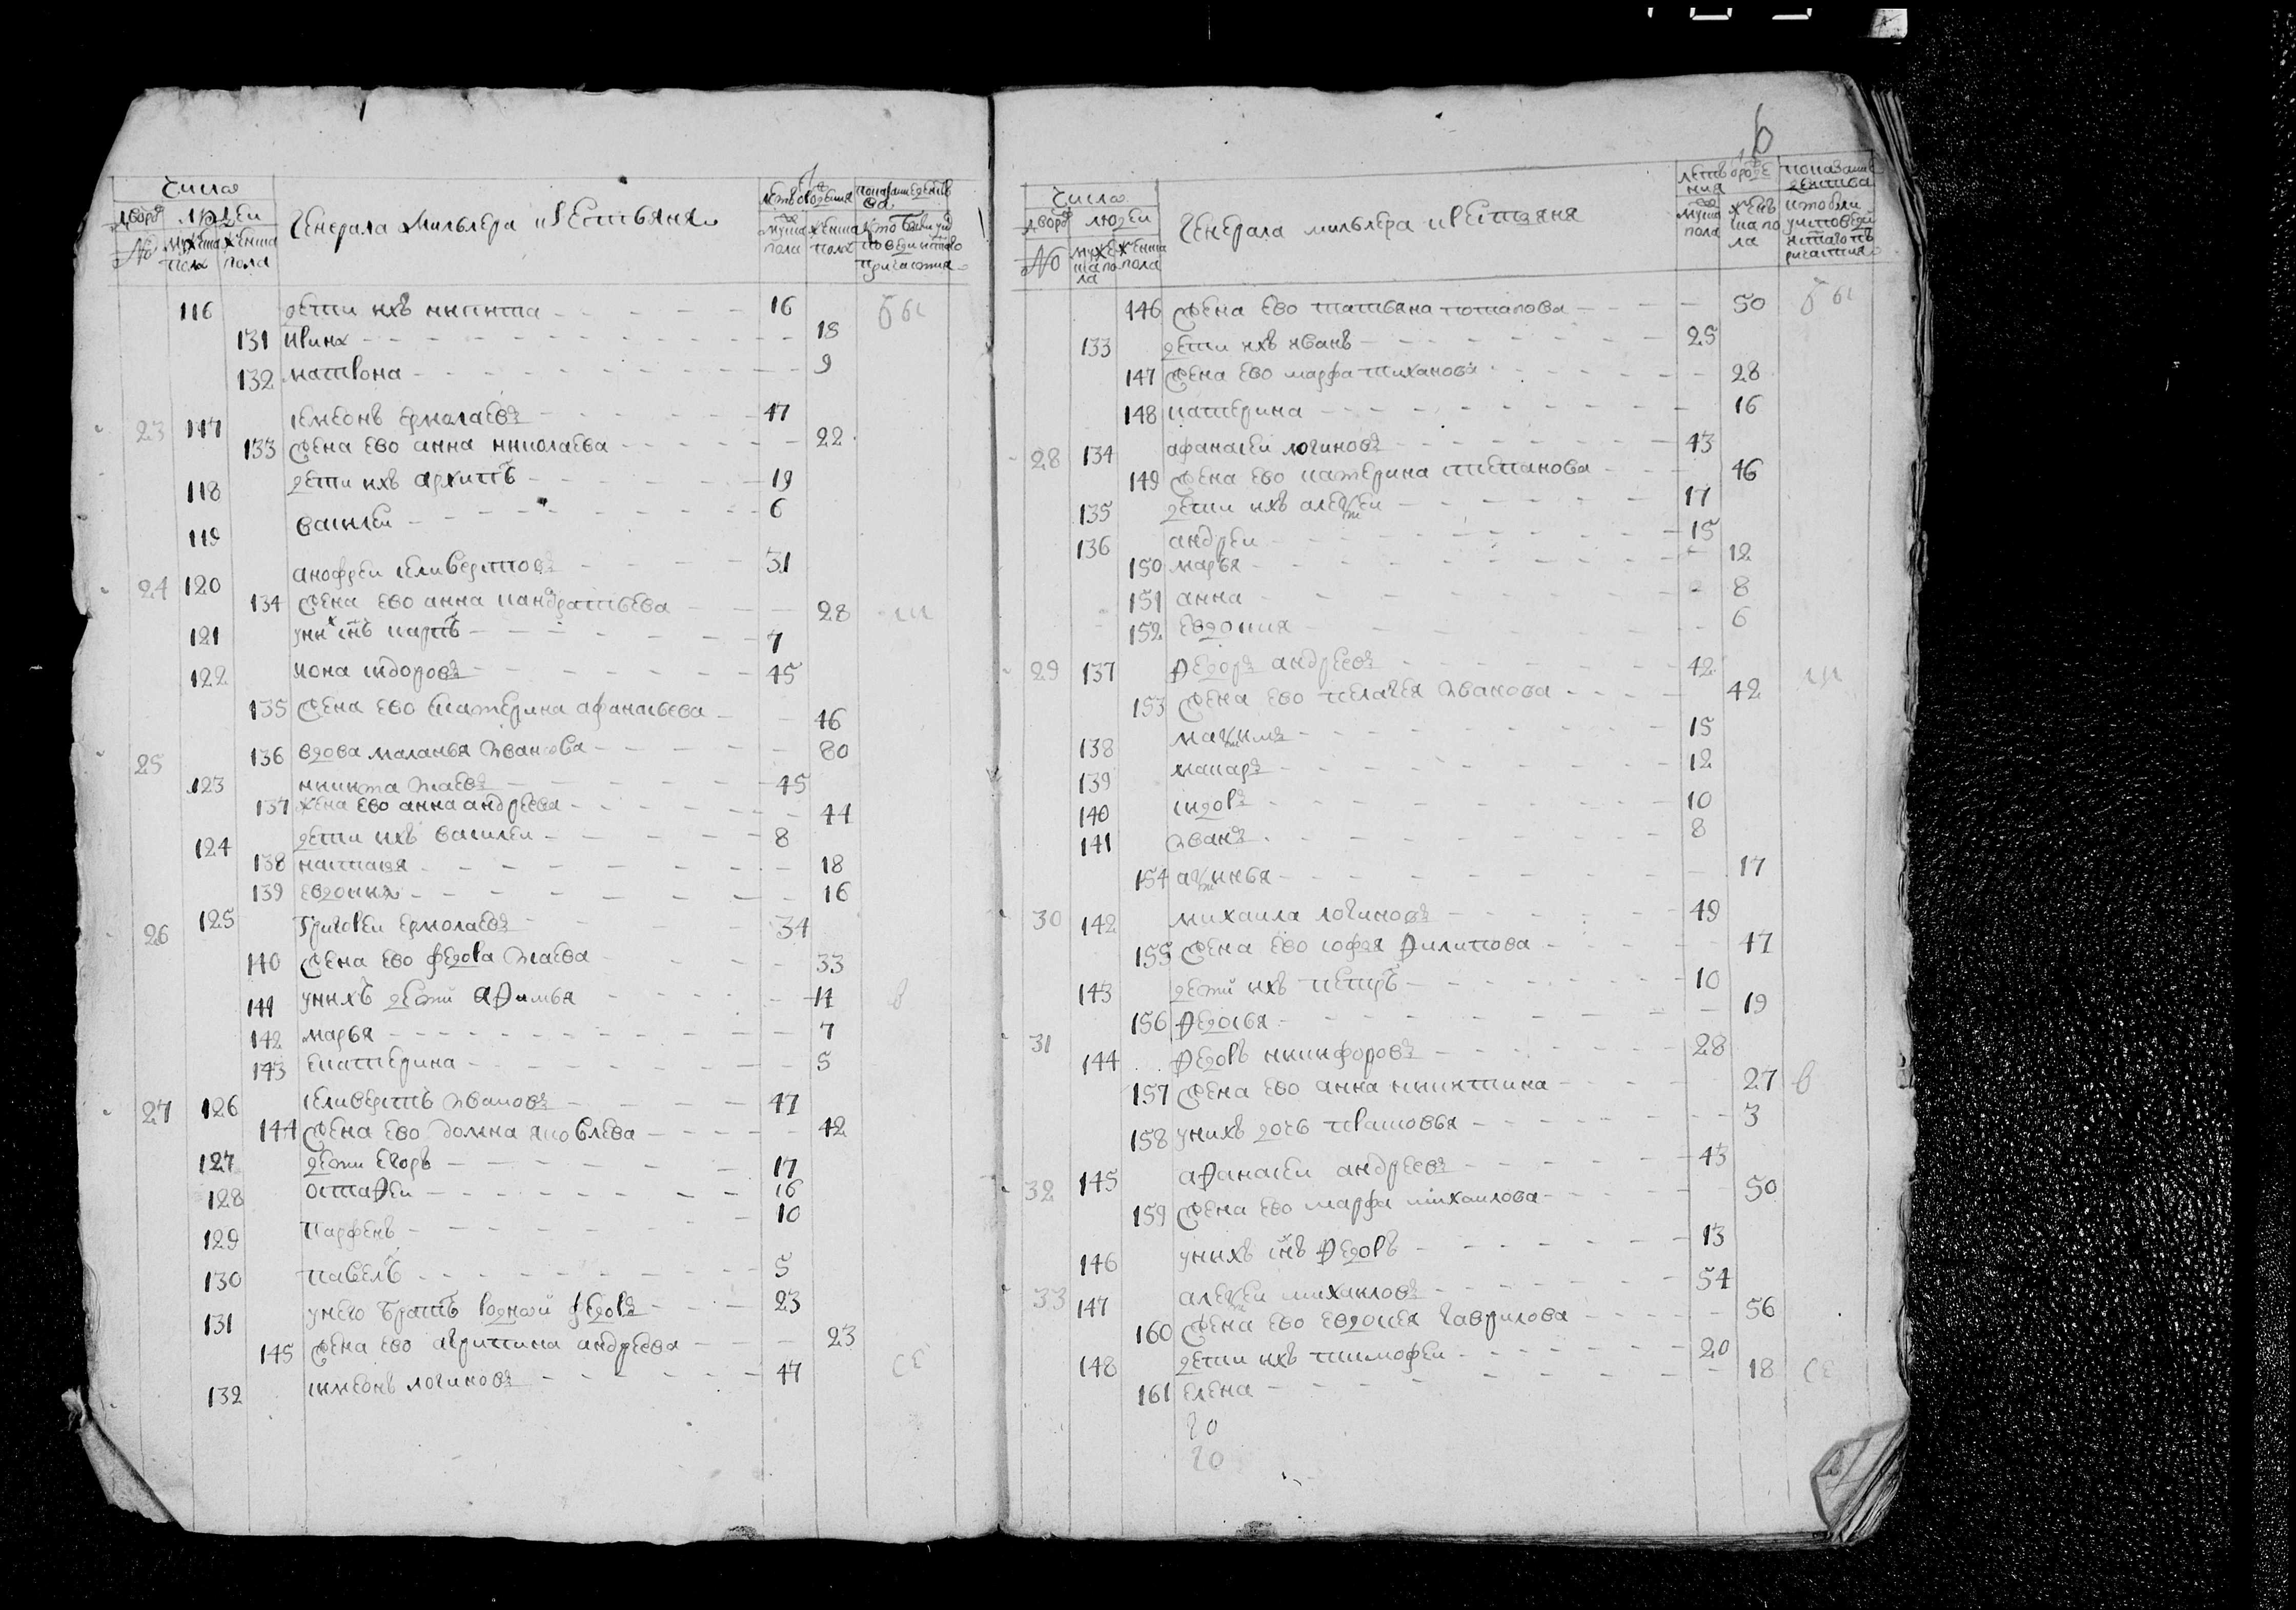 Число
Дворо людеи
№ мужеска пола женска пола
Генерала Мильлера крестьяня
лета от рождения
мужеска пола женска пола
116 дети ихъ никита 16 бы
131 ирина 18
132 матрона 9
23 117 семеонъ ермолаевъ 47
133 Жена ево анна николаева 22
118 дети ихъ архипъ 19
119 василеи 6
24 120 анофреи селиверстовъ 31
134 Жена ево анна кандратьева 28 ли
121 у них снъ карпъ 7
122 иона сидоровъ 45
135 Жена ево Екатерина афанасьева 46
25 136 вдова маланья Иванова 80
123 никита Исаевъ 45
137 жена ево анна андреева 44
124 дети ихъ василеи 8
138 настасья 18
139 евдокия 16
26 125 Григореи ермолаевъ 34
140 Жена ево федора Исаева 33
141 у нихъ дети афимья 11 в
142 марья 7
143 екатерина 5
27 126 селиверстъ Ивановъ 47
144 Жена ево домна яковлева 42
127 дети егоръ 17
128 остафеи 16
129 парфенъ 10
130 павелъ 5
131 у него братъ родной федоръ 23
145 Жена ево агрипина андреева 23
132 симеонъ логиновъ 47 се
6
Число
дворо людеи
№ мужеска пола женска пола
Генерала мильлера крестьяня
летъ от рождения
мужеска пола женска пола
146 Жена ево татьяна потапова 50 бы
133 дети ихъ иванъ 25
147 Жена ево марфа тиханова 28
148 катерина 16
28 134 афанасеи логиновъ 43
149 Жена ево катерина степанова 46
135 дети ихъ алексеи 17
136 андреи 15
150 марья 12
151 анна 8
152 евдокия 6
29 137 Федоръ андреевъ 42 ли
153 Жена ево пелагея Иванова 42
138 максимъ 15
139 макаръ 12
140 сидоръ 10
141 Иванъ 8
154 аксинья 17
30 142 михаила логиновъ 49
155 Жена ево софья Филипова 47
143 дети ихъ петръ 10
156 Федосья 19
31 144 Федоръ никифоровъ 28
157 Жена ево анна никитина 27 в
158 у нихъ дочь прасковья 3
32 145 аФанасеи андреевъ 43
159 Жена ево марфа михаилова 50
146 у нихъ снъ Федоръ 13
33 147 алексеи михаиловъ 54
160 Жена ево евдокея гаврилова 56
148 дети ихъ тимофеи 20
161 елена 18 се
20
20